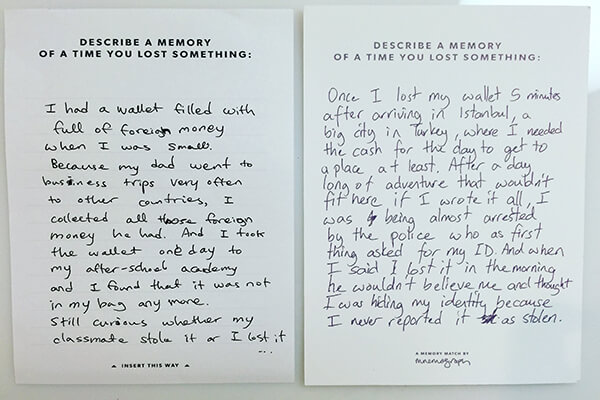 DESCRIBE A MEMORY
OF A TIME YOU LOST SOMETHING:
I had a wallet filled with
full of foreign money
when I was small.
Because my dad went to
business trips very often
to other countries, I
collected all those foreign
money he had. And I took
the wallet one day to
my after-school academy
and I found that it was not
in my bag any more.
Still curious whether my
classmate stole it or I lost it
...
▲ INSERT THIS WAY ▲
DESCRIBE A MEMORY
OF A TIME YOU LOST SOMETHING:
Once I lost my wallet 5 minutes
after arriving in Istanbul, a
big city in Turkey, where I needed
the cash for the day to get to
a place at least. After a day
long of adventure that wouldn't
fit here if I wrote it all, I
was being almost arrested
by the police who as first
thing asked for my ID. And when
I said I lost it in the morning
he wouldn't believe me and thought
I was hiding my identity because
I never reported it as stolen.
A MEMORY MATCH BY
mnemography